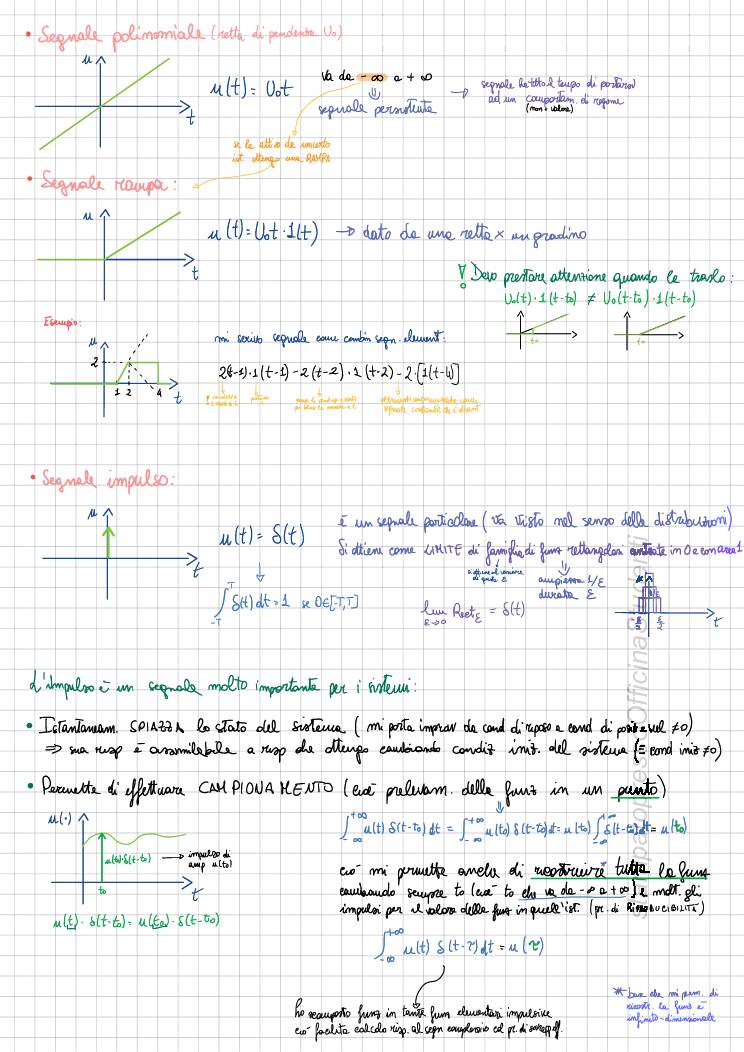 • Segnale polinomiale (retta di pendenza U₀)
u
t
u(t) = U₀t
va da -∞ a +∞
segnale persistente
→ segnale ha tutto il tempo di portarsi
ad un comportam. di regime
(non è valore)
se la attivo da un certo
ist. ottengo una RAMPA
• Segnale rampa:
u
t
u(t) = U₀t · 1(t) → dato da una retta × un gradino
! Devo prestare attenzione quando la traslo:
U₀(t) · 1(t-t₀) ≠ U₀(t-t₀) · 1(t-t₀)
t₀
t₀
Esempio:
u
2
1 2 4 t
mi scrivo segnale come combin segn. element:
2(t-1)·1(t-1) - 2(t-2)·1(t-2) - 2·[1(t-4)]
• Segnale impulso:
u
t
u(t) = δ(t)
∫₋T^T δ(t) dt = 1 se 0∈[-T,T]
è un segnale particolare (va visto nel senso delle distribuzioni)
Si ottiene come LIMITE di famiglia di funz rettangolari centrate in 0 e con area 1
ampiezza 1/ε
durata ε
lim ε→0 Rect_ε = δ(t)
u
1/ε
-ε/2 ε/2 t
L'impulso è un segnale molto importante per i sistemi:
• Istantaneam. SPIAZZA lo stato del sistema (mi porta improv da cond di riposo a cond di pos e vel ≠0)
⇒ sua risp è assimilabile a risp che ottengo cambiando condiz iniz. del sistema (≡ cond iniz ≠0)
• Permette di effettuare CAMPIONAMENTO (cioè prelevam. della funz in un punto)
u(·)
u(t₀)·δ(t-t₀) → impulso di
amp u(t₀)
t₀ t
u(t) · δ(t-t₀) = u(t₀) · δ(t-t₀)
∫₋∞^+∞ u(t) δ(t-t₀) dt = ∫₋∞^+∞ u(t₀) δ(t-t₀) dt = u(t₀) ∫₋∞^+∞ δ(t-t₀) dt = u(t₀)
ciò mi permette anche di ricostruire* tutta la funz
cambiando sempre t₀ (cioè t₀ che va da -∞ a +∞) e molt. gli
impulsi per il valore della funz in quell'ist. (pr. di RIPRODUCIBILITÀ)
∫₋∞^+∞ u(t) δ(t-τ) dt = u(τ)
ho scomposto funz in tante funz elementari impulsive
ciò facilita calcolo risp. al segn complessivo col pr. di sovrapp eff.
* base che mi perm. di
ricostr. la funz è
infinito-dimensionale